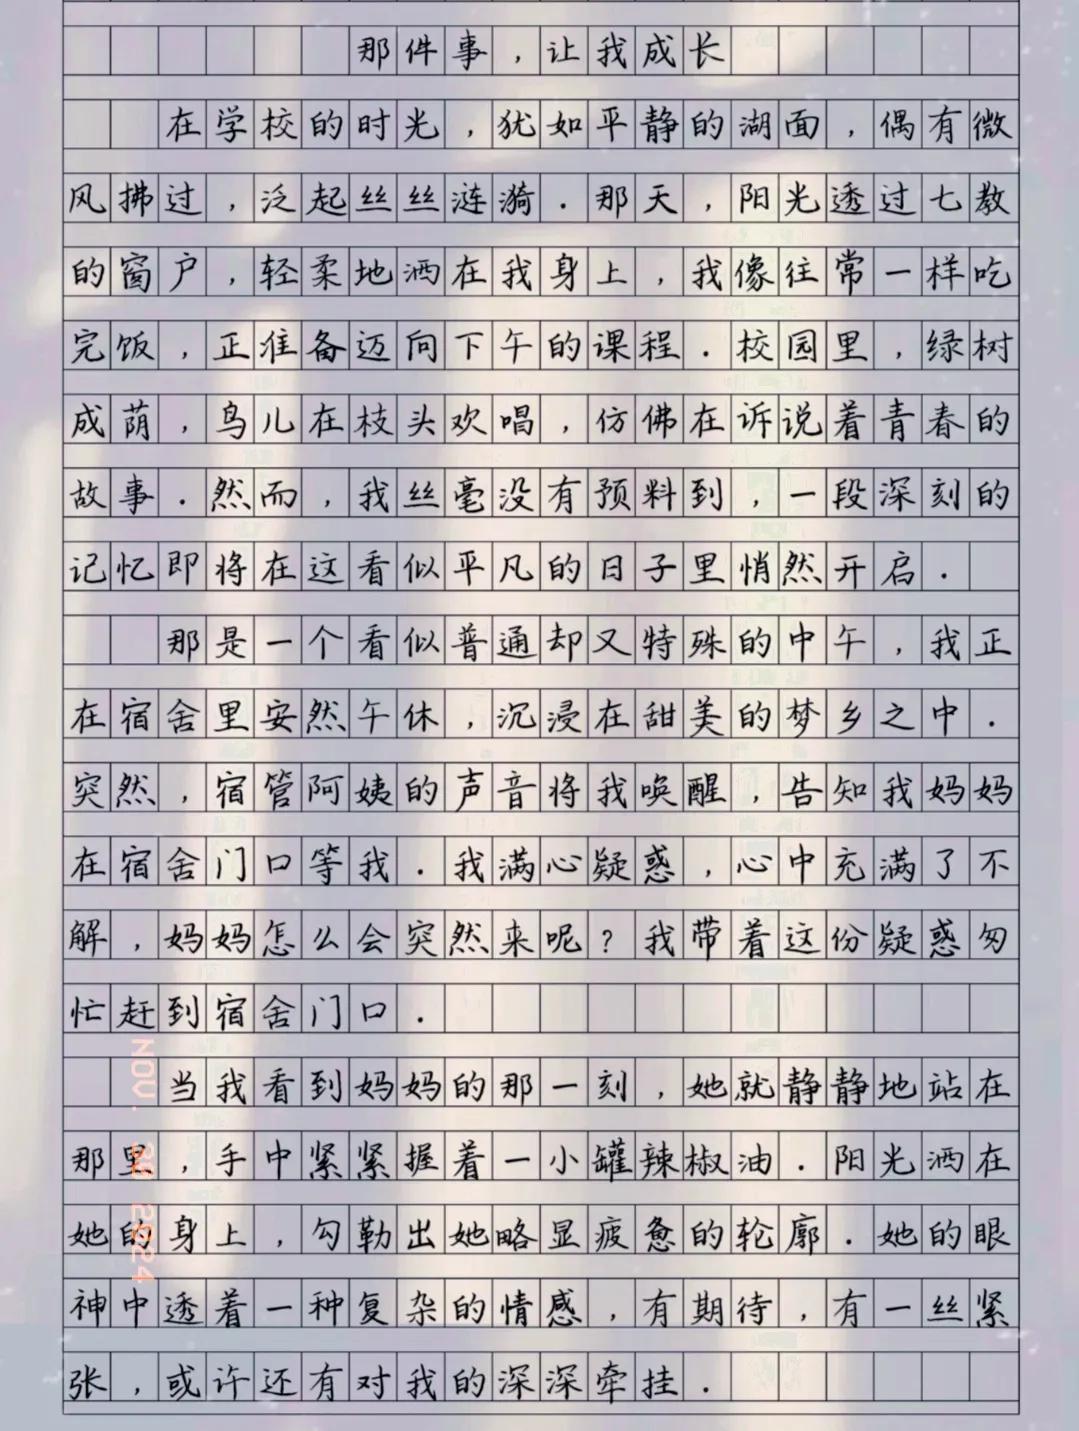 那件事，让我成长
在学校的时光，犹如平静的湖面，偶有微
风拂过，泛起丝丝涟漪．那天，阳光透过七教
的窗户，轻柔地洒在我身上，我像往常一样吃
完饭，正准备迈向下午的课程．校园里，绿树
成荫，鸟儿在枝头欢唱，仿佛在诉说着青春的
故事．然而，我丝毫没有预料到，一段深刻的
记忆即将在这看似平凡的日子里悄然开启．
那是一个看似普通却又特殊的中午，我正
在宿舍里安然午休，沉浸在甜美的梦乡之中．
突然，宿管阿姨的声音将我唤醒，告知我妈妈
在宿舍门口等我．我满心疑惑，心中充满了不
解，妈妈怎么会突然来呢？我带着这份疑惑匆
忙赶到宿舍门口．
当我看到妈妈的那一刻，她就静静地站在
那里，手中紧紧握着一小罐辣椒油．阳光洒在
她的身上，勾勒出她略显疲惫的轮廓．她的眼
神中透着一种复杂的情感，有期待，有一丝紧
张，或许还有对我的深深牵挂．
NOV. 30 2024